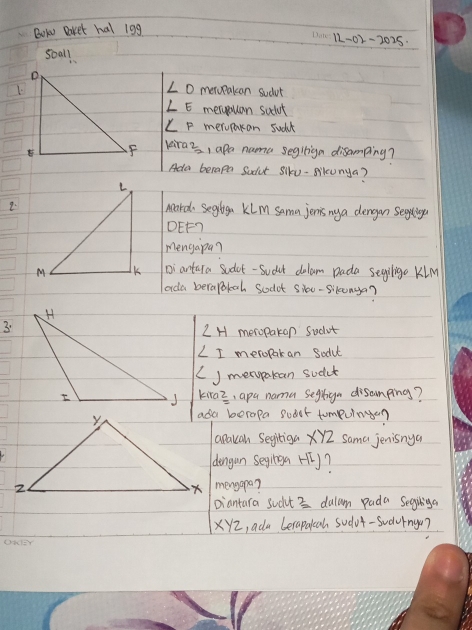 Buku Paket hal 199
Date: 12-02-2025.
Soal!
1.
D
E
F
∠ D merupakan sudut
∠ E merupakan sudut
∠ F merupakan sudut
Kira2, apa nama segitiga disamping?
Ada berapa sudut siku-sikunya?
2.
L
M
K
Apakah segitiga KLM sama jenisnya dengan segitiga
DEF?
Mengapa?
Diantara sudut-sudut dalam pada segitiga KLM
ada berapakah sudut siku-sikunya?
3.
H
I
J
∠ H merupakan sudut
∠ I merupakan sudut
∠ J merupakan sudut
Kira2, apa nama segitiga disamping?
ada berapa sudut tumpulnya?
Y
Z
X
apakah segitiga XYZ sama jenisnya
dengan segitiga HIJ?
mengapa?
Diantara sudut2 dalam pada segitiga
XYZ, ada berapakah sudut-sudutnya?